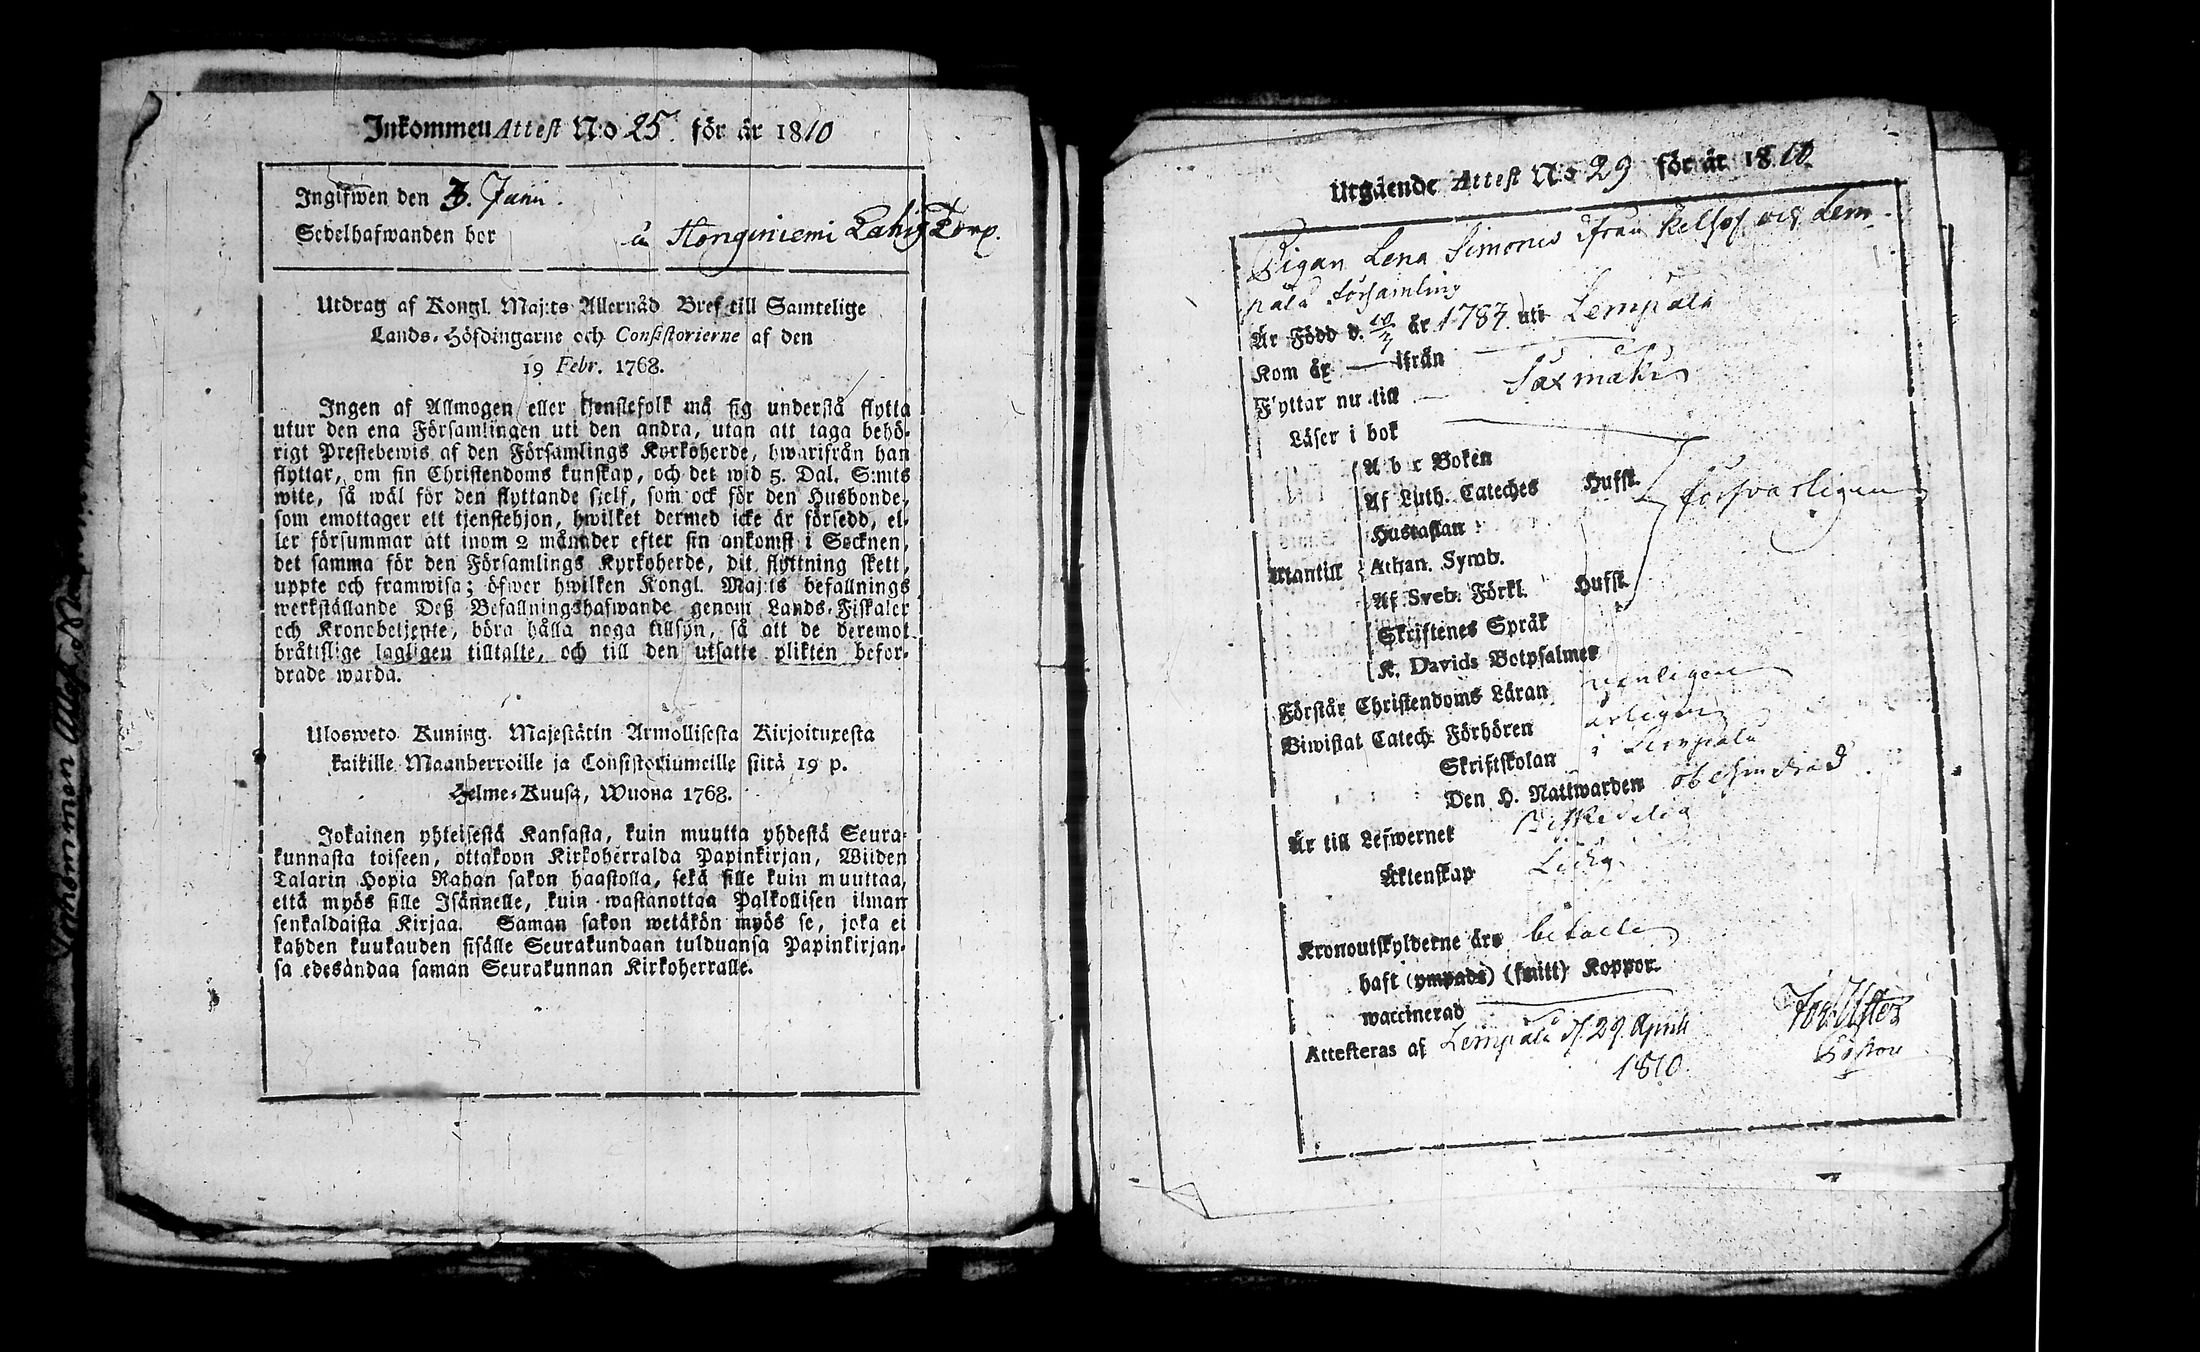 Inkommen Attest No 25. för år 1810
Ingifwen den 3. Junii.
Sedelhafwanden bor å Honginiemi Lahis Torp.
Utdrag af Kongl. Maj:ts Allernåd Bref till Samtelige
Lands-Höfdingarne och Consistorierne af den
19 Febr. 1768.
Ingen af Allmogen eller tjenstefolk må sig understå flytta
utur den ena Församlingen uti den andra, utan att taga behö-
rigt Prestebewis af den Församlings Kyrkoherde, hwarifrån han
flyttar, om sin Christendoms kunskap, och det wid 5. Dal. S:mts
wite, så wäl för den flyttande sjelf, som ock för den Husbonde,
som emottager ett tjenstehjon, hwilket dermed icke är försedd, el-
ler försummar att inom 2 månader efter sin ankomst i Socknen,
det samma för den Församlings Kyrkoherde, dit flyttning skett,
uppte och framwisa; öfwer hwilken Kongl. Maj:ts befallnings
werkställande Deß Befallningshafwande genom Lands-Fiskaler
och Kronobetjente, böra hålla noga tillsyn, så att de deremot
bråttslige lagligen tilltalte, och till den utsatte plikten befor-
drade warda.
Ulosweto Kuning. Majestätin Armollisesta Kirjoituxesta
kaikille Maanherroille ja Consistoriumeille siitä 19 p.
Helme-Kuusa, Wuona 1768.
Jokainen yhteisestä Kansasta, kuin muutta yhdestä Seura-
kunnasta toiseen, ottakoon Kirkoherralda Papinkirjan, Wiiden
Talarin Hopia Rahan sakon haastolla, sekä sille kuin muuttaa,
että myös sille Isännelle, kuin wastanottaa Palkollisen ilman
senkaldaista Kirjaa. Saman sakon wetäkön myös se, joka ei
kahden kuukauden sisälle Seurakundaan tulduansa Papinkirjan-
sa edesandaa saman Seurakunnan Kirkoherralle.
Utgående Attest No 29 för år 1810.
Pigan Lena Simonis ifrån Kelhos och Lem-
pälä församling
Är Född d. 10/7 år 1787 uti Lempälä
Kom år — ifrån —
Flyttar nu till — Saxmäki
Läser i bok
A b c Boken
Af Luth. Cateches Hufst.
Hustaflan
Utantill Athan. Symb. försvarligen
Af Sveb. Förkl. Hufst.
Skriftenes Språk
K. Davids Botpsalmer
Förstår Christendoms Läran
Biwistat Catech. Förhören årligen
Skriftskolan i Lempälä
Den H. Nattwarden obehindrad
Är till Lefwernet
Äktenskap Ledig
Kronoutskylderne äro betalte
haft (ympade) (smitt) Koppor.
waccinerad
Attesteras af Lempälä d. 29. Aprili
1810.
Pastor